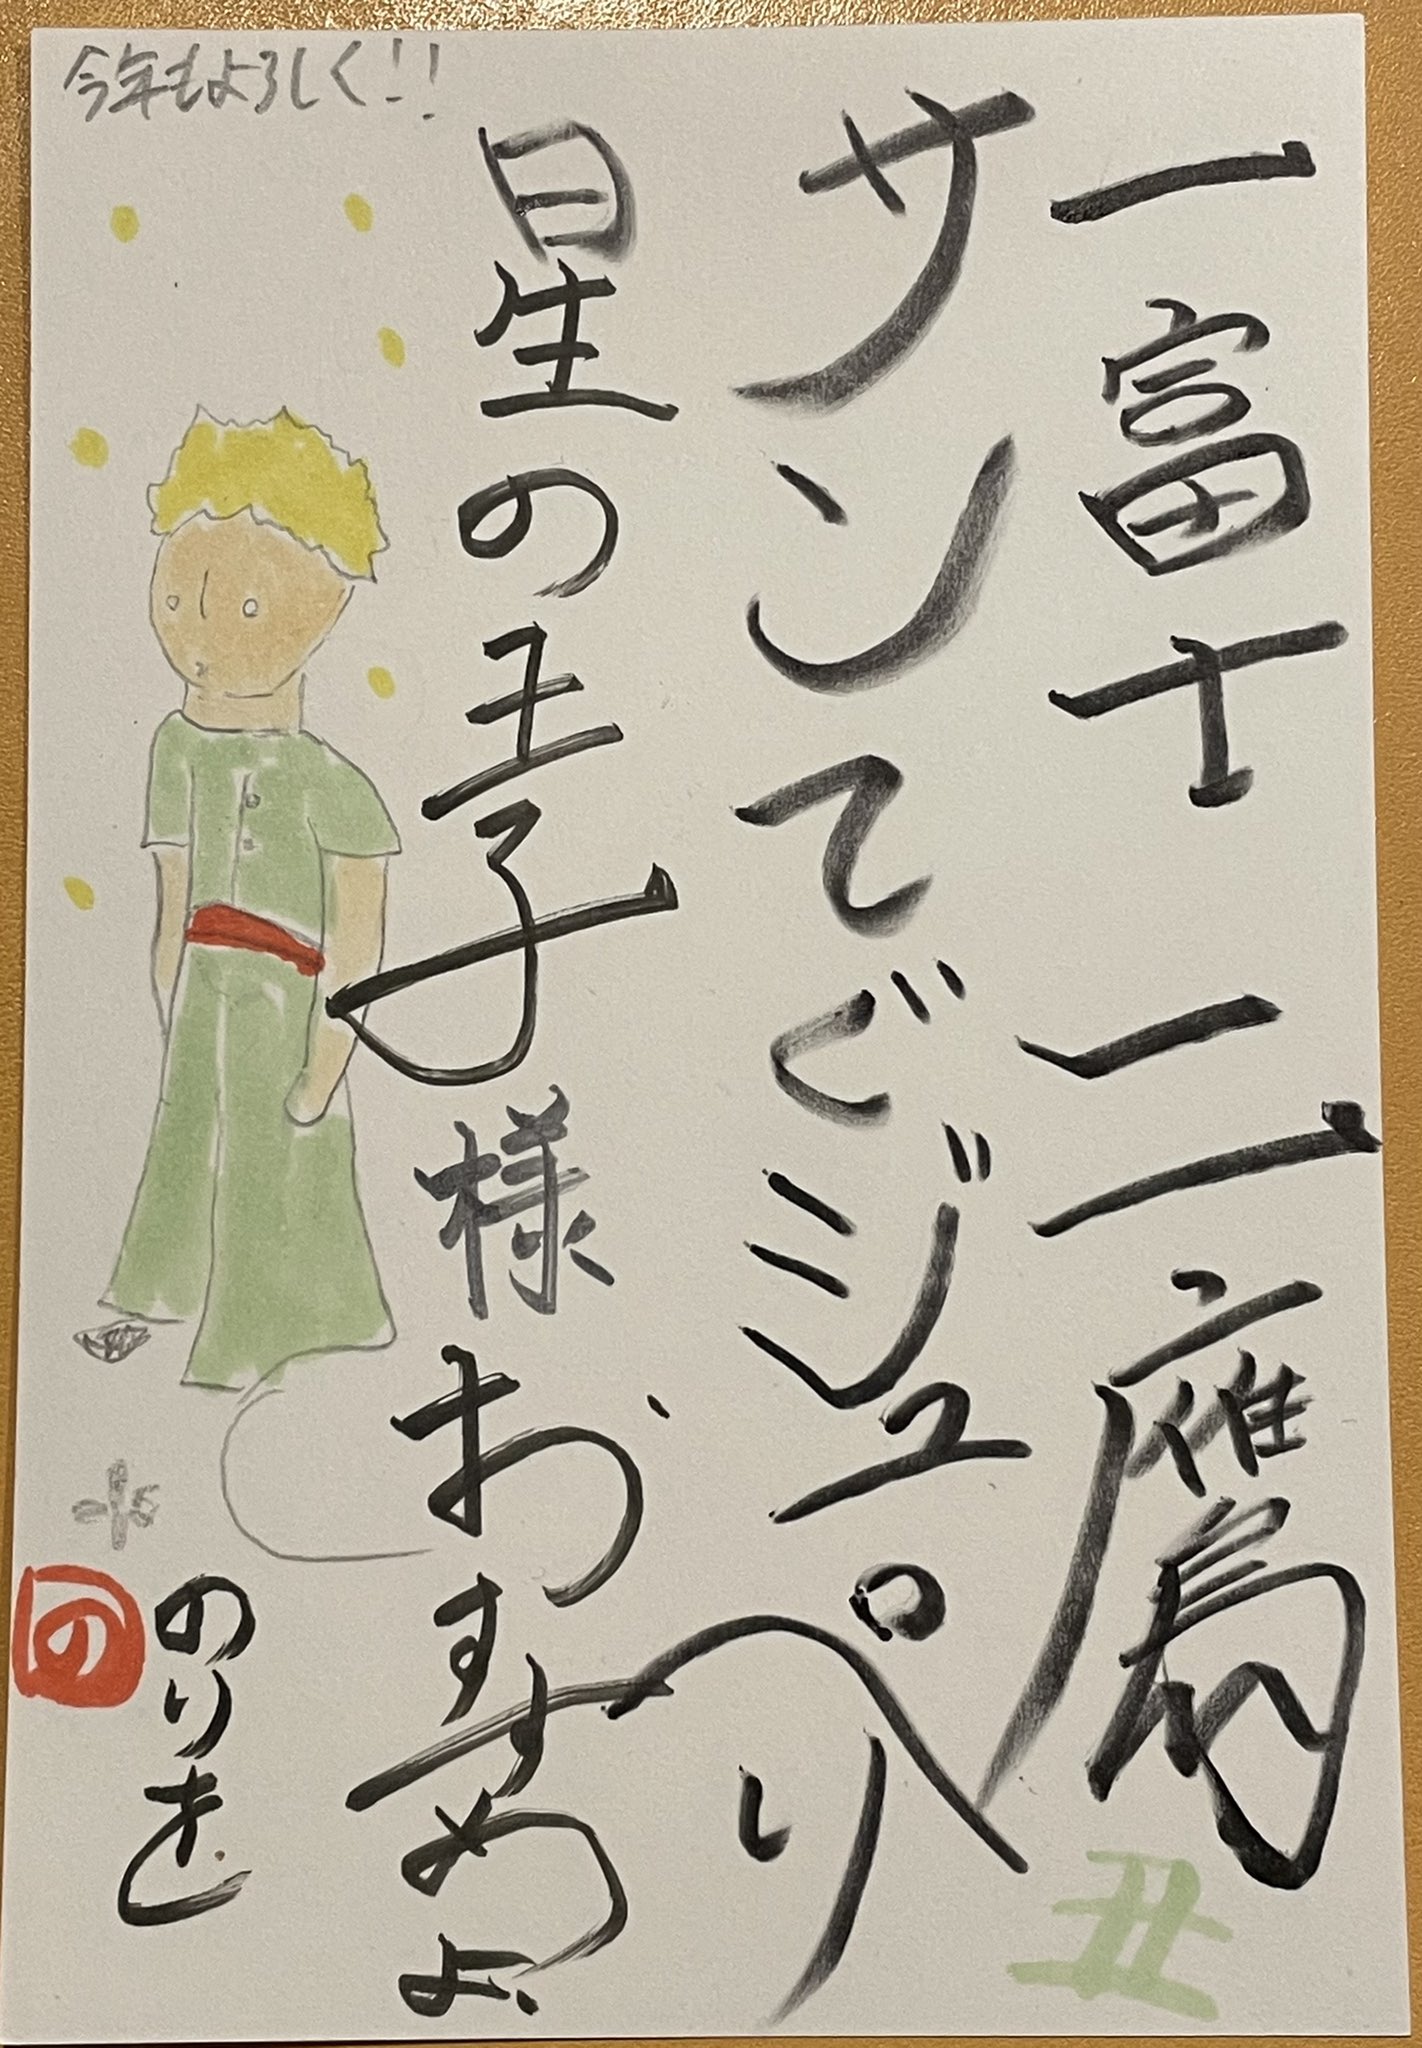 一富士 二鷹
サンてぐジュペリ
星の王子様おすすめよ
今年もよろしく!!
のりを
の
丑